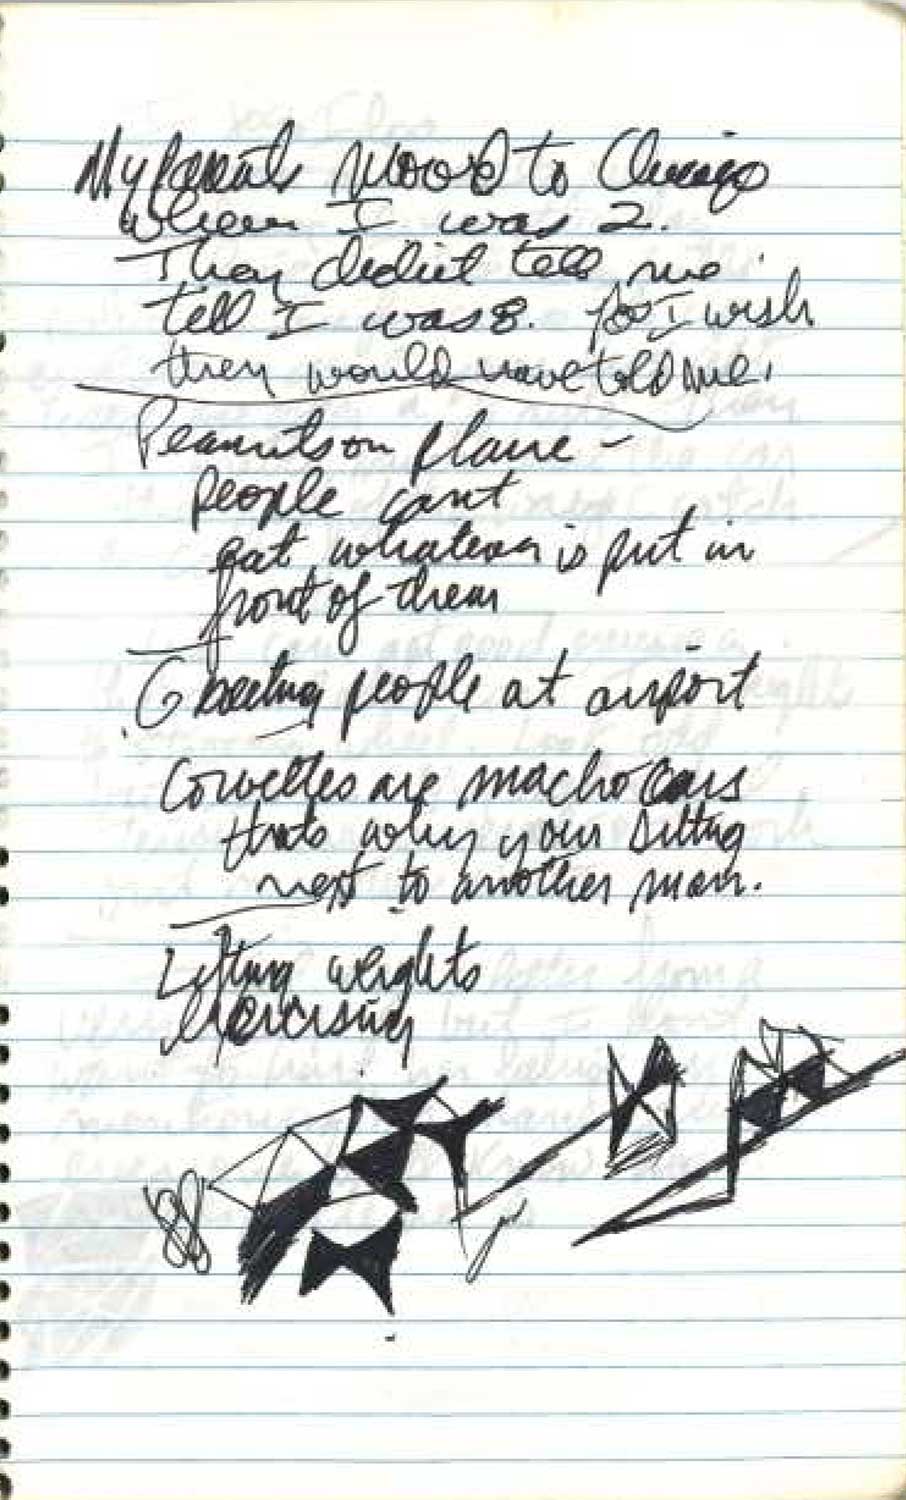 My parents moved to Chicago
when I was 2.
They didnt tell me
tell I was 8. I wish
they would have told me.
Peanuts on plane -
people cant
eat whatever is put in
front of them
Greeting people at airport
Corvettes are macho cars
thats why your sitting
next to another man.
Lifting weights
Exercising